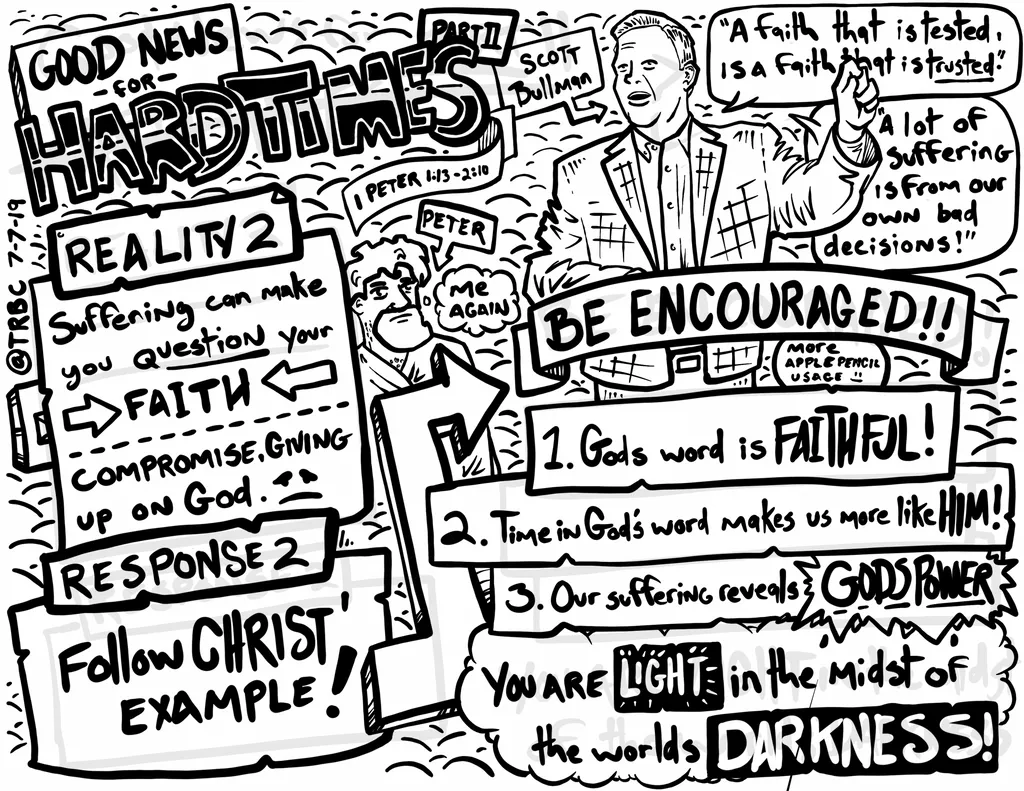 GOOD NEWS
-FOR-
HARDTIMES
PART II
1 PETER 1:13-2:10
@TRBC 7-7-19
SCOTT
Bullman
"A faith that is tested,
is a faith that is trusted."
"A lot of
suffering
is from our
own bad
decisions!"
REALITY 2
Suffering can make
you QUESTION your
FAITH
COMPROMISE, GIVING
UP ON God.
PETER
ME
AGAIN
RESPONSE 2
Follow CHRIST'
EXAMPLE!
BE ENCOURAGED!!
MORE
APPLE PENCIL
USAGE !!
1. Gods word is FAITHFUL!
2. Time in God's word makes us more like HIM!
3. Our suffering reveals GODS POWER
YOU ARE LIGHT in the midst of
the worlds DARKNESS!